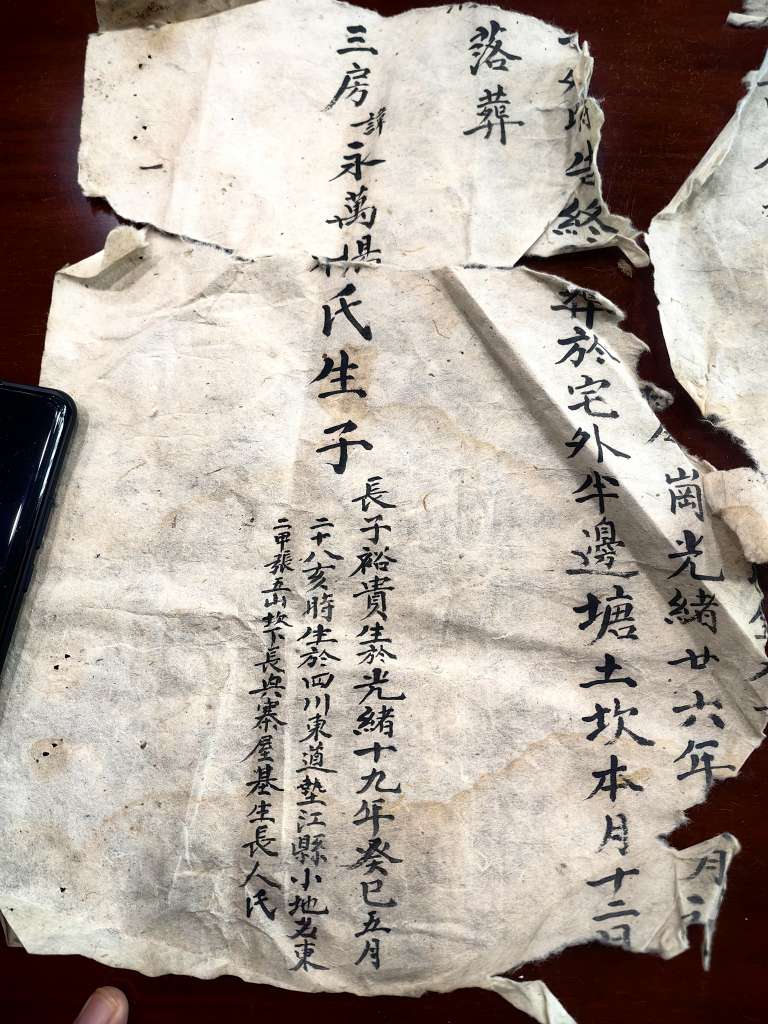 崗光緒廿六年
月
終
葬於宅外半邊塘土坎本月十二日
落葬
三房諱永萬楊氏生子
長子裕貴生於光緒十九年癸巳五月
二十八亥時生於四川東道墊江縣小地名東
二甲張五山坎下長興寨屋基生長人氏